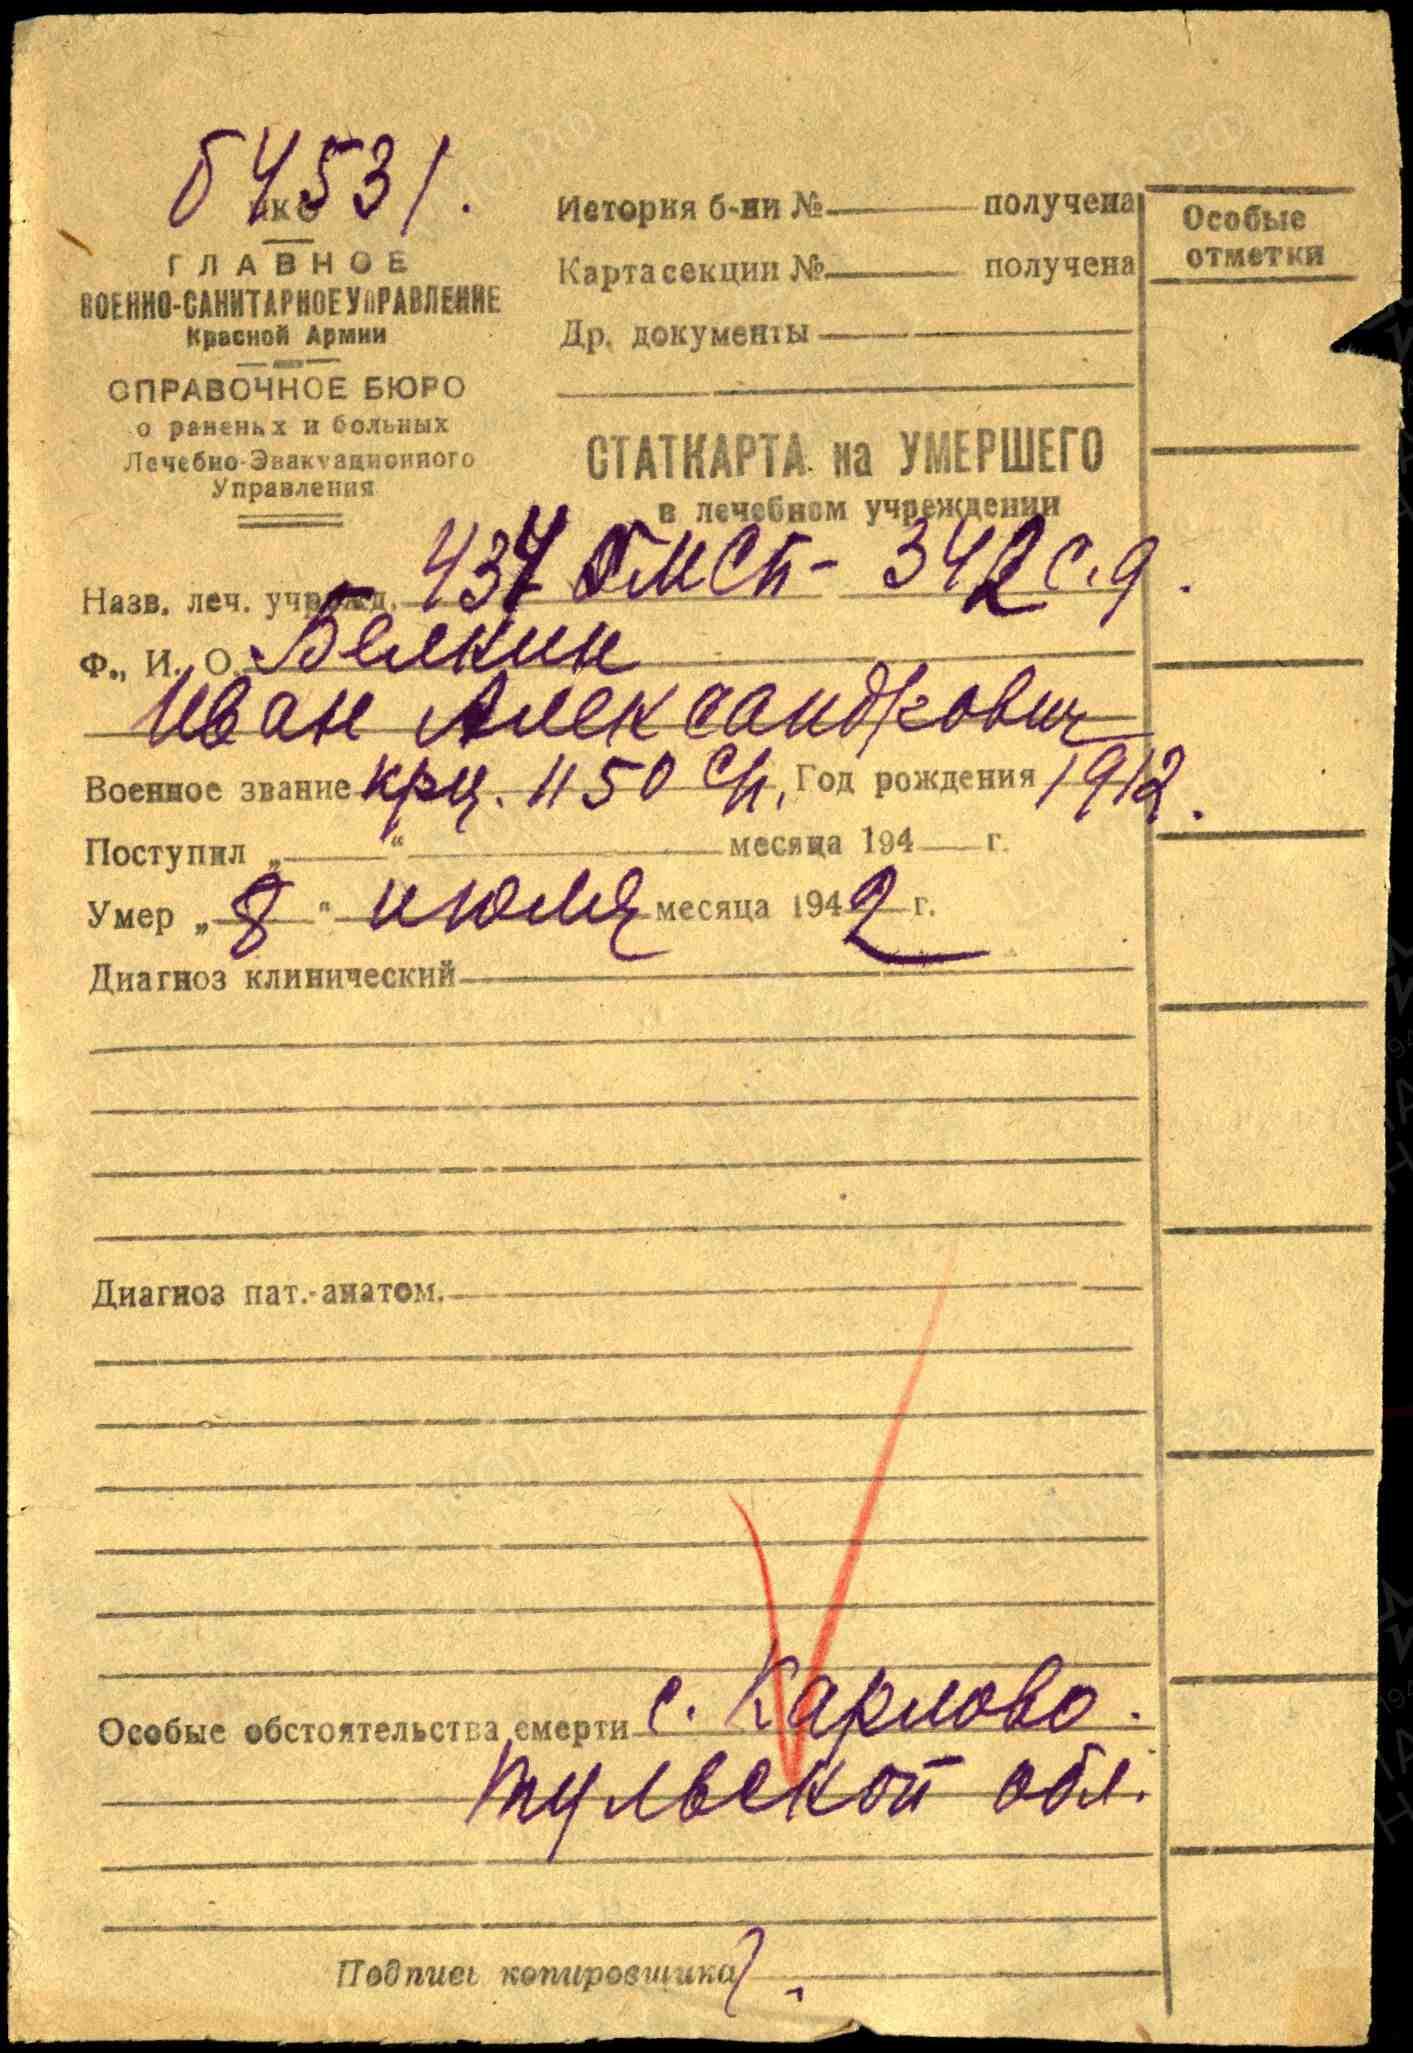 64531.
НКО
ГЛАВНОЕ
ВОЕННО-САНИТАРНОЕ УПРАВЛЕНИЕ
Красной Армии
СПРАВОЧНОЕ БЮРО
о раненых и больных
Лечебно-Эвакуационного
Управления
История б-ни № получена
Карта секции № получена
Др. документы
Особые
отметки
СТАТКАРТА на УМЕРШЕГО
в лечебном учреждении
Назв. леч. учрежд. 437 ОМСБ - 342 с.д.
Ф., И., О. Белкин
Иван Александрович
Военное звание крц. 1150 сп. Год рождения 1912.
Поступил „ “ месяца 194 г.
Умер „8“ июля месяца 1942 г.
Диагноз клинический
Диагноз пат.-анатом.
Особые обстоятельства смерти с. Карлово.
Тульской обл.
Подпись копировщика